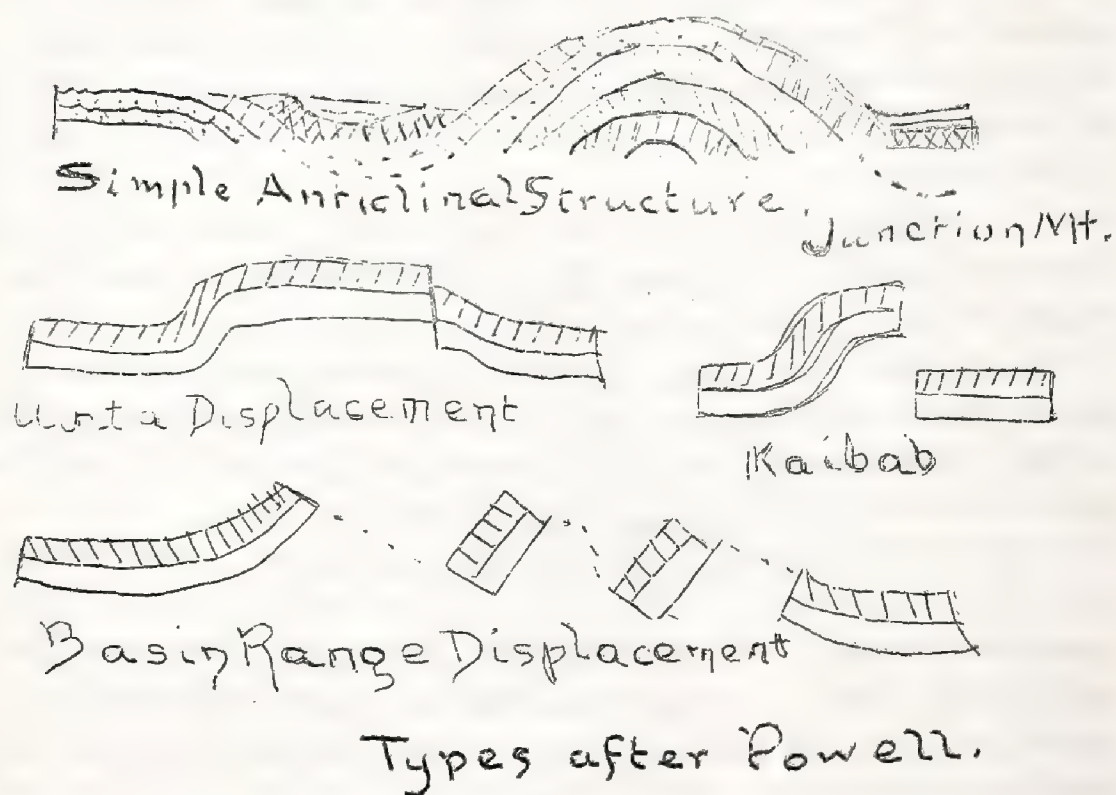 Simple Anticlinal Structure.
Junction Mt.
Uinta Displacement
Kaibab
Basin Range Displacement
Types after Powell.